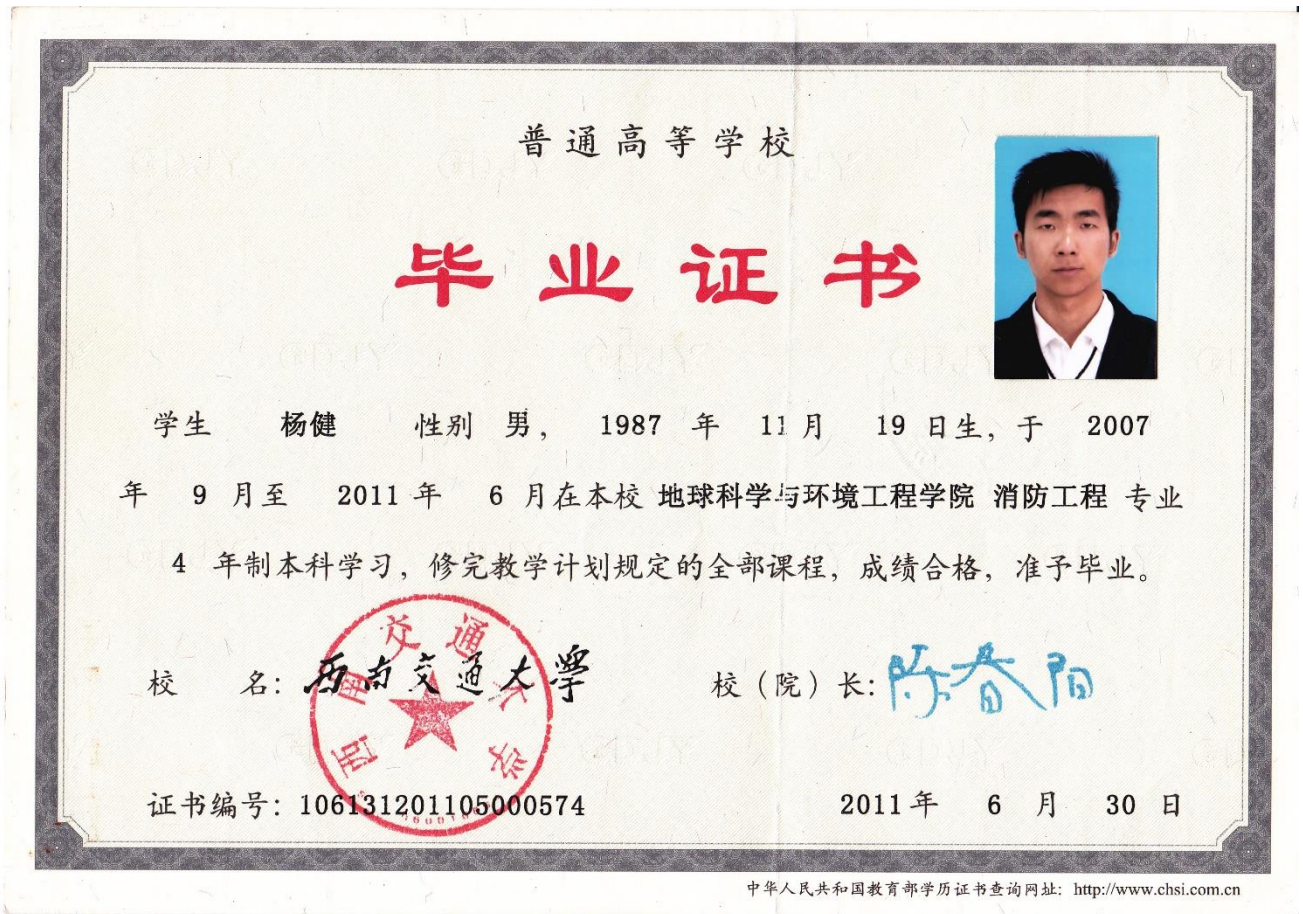 普通高等学校
毕业证书
学生 杨健 性别 男， 1987 年 11 月 19 日生，于 2007
年 9 月至 2011 年 6 月在本校 地球科学与环境工程学院 消防工程 专业
4 年制本科学习，修完教学计划规定的全部课程，成绩合格，准予毕业。
校 名：西南交通大學
西南交通大学
校（院）长：陈春阳
证书编号：106131201105000574
2011 年 6 月 30 日
中华人民共和国教育部学历证书查询网址：http://www.chsi.com.cn